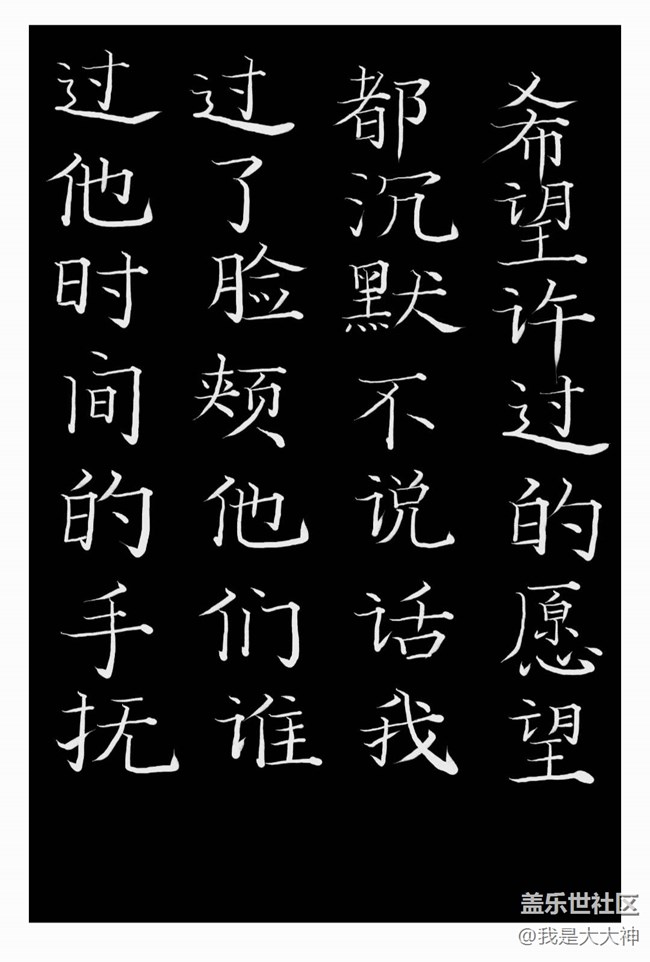 希望许过的愿望
都沉默不说话我
过了脸颊他们谁
过他时间的手抚
盖乐世社区
@我是大大神